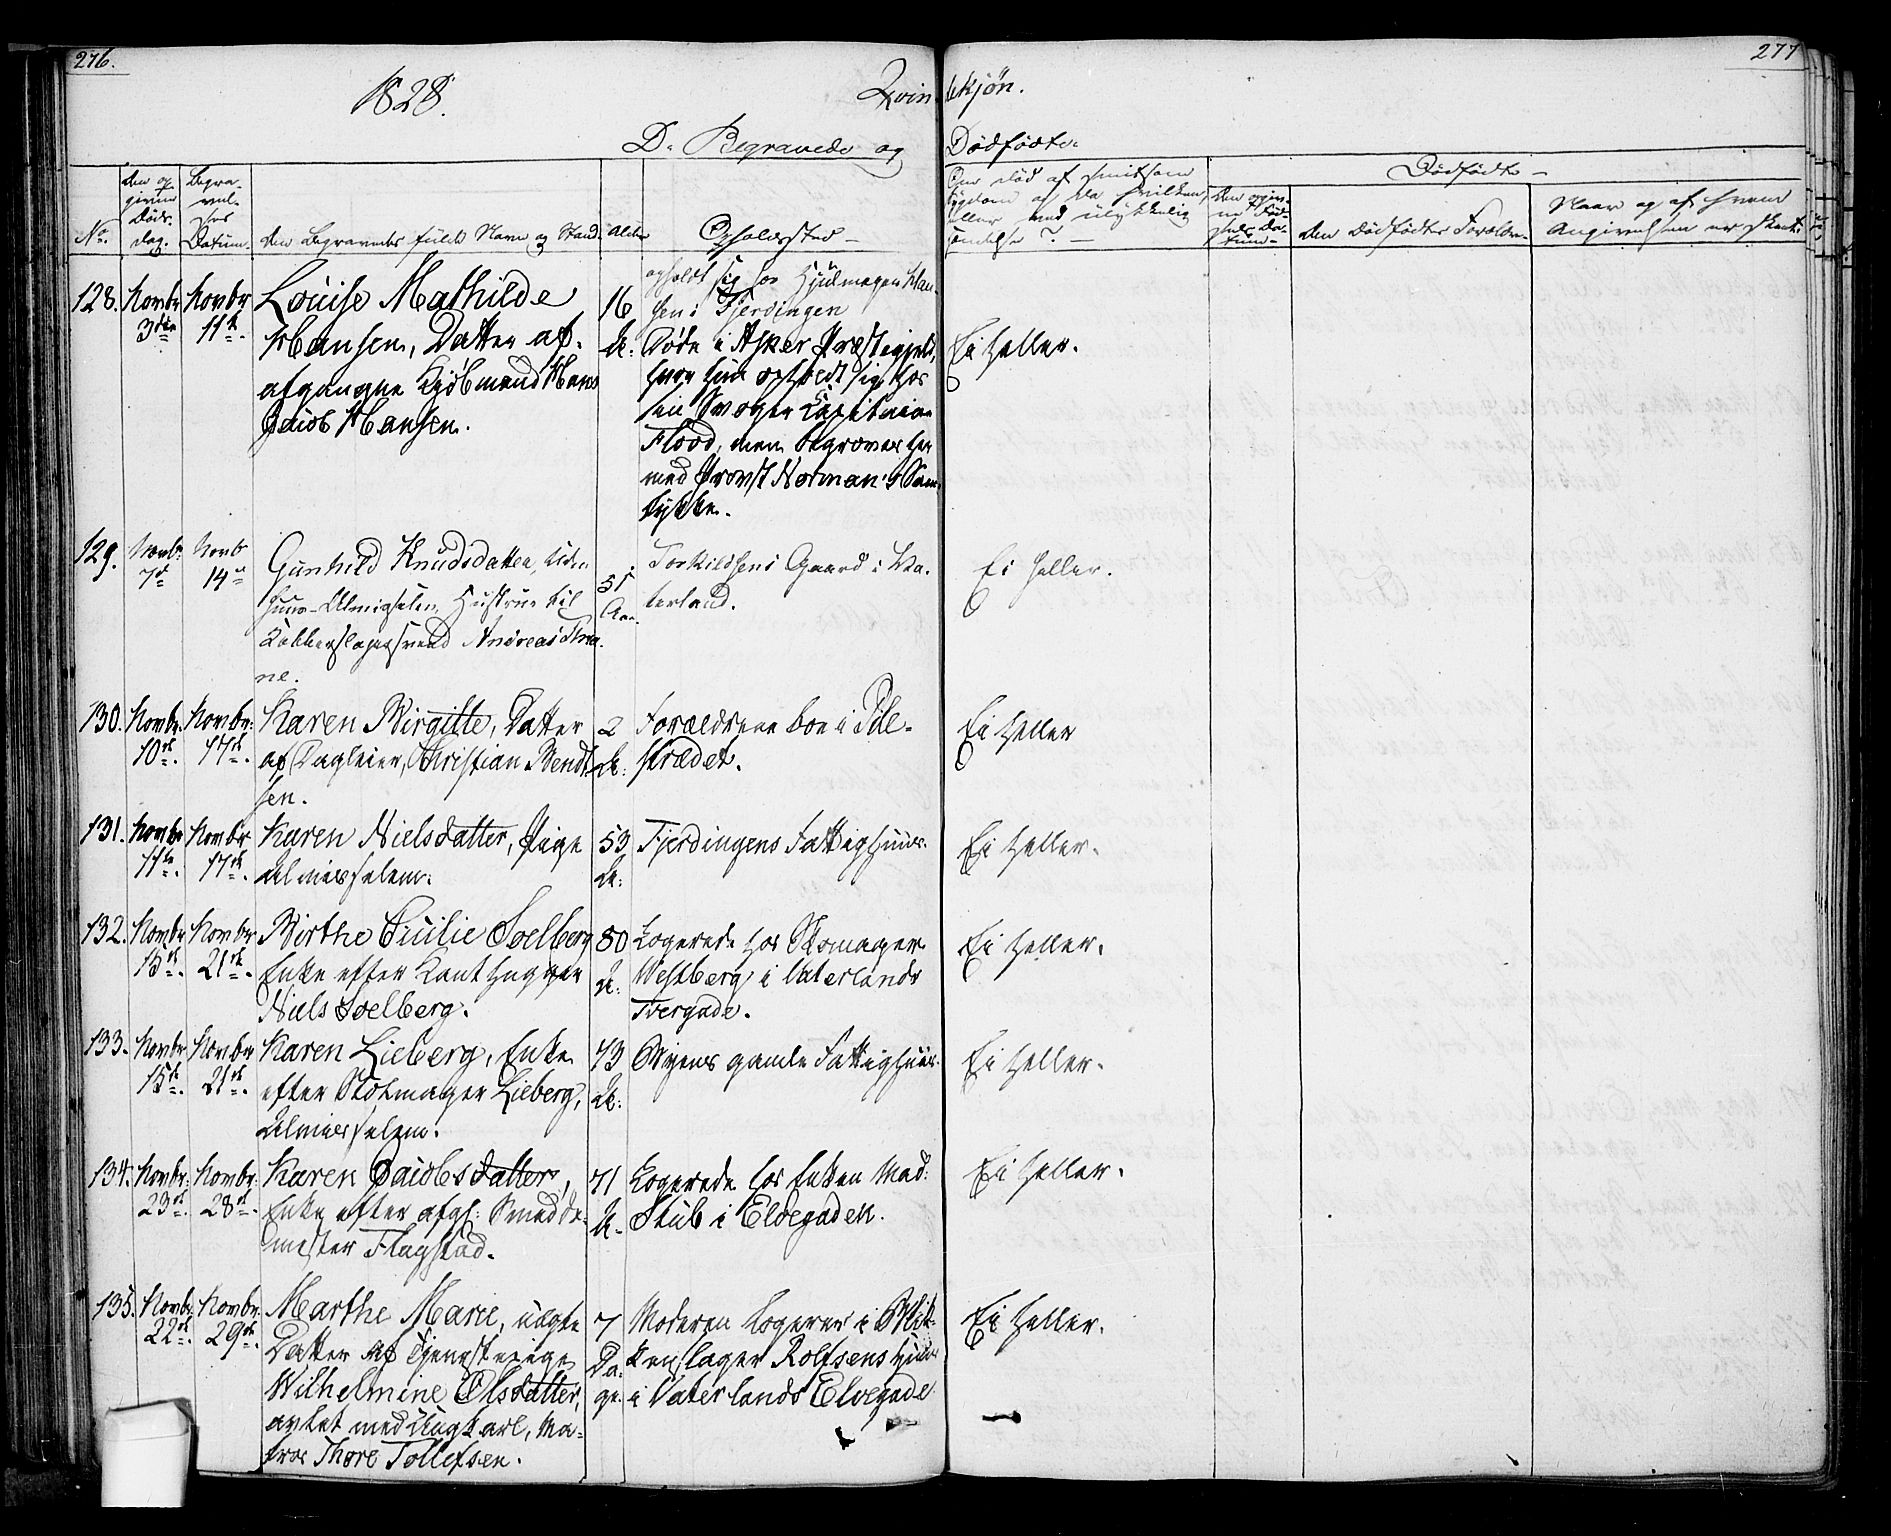 276.
277
1828.
Qvindekjøn.
D. Begravede og Dødfødte.
No.
Den opgivne Døds-Dag.
Begravelses Datum.
den Begravedes fulde Navn og Stand.
Alder
Opholdssted
Om død af smitsom Sygdom og da hvilken, eller ved ulykkelig Hændelse? -
Dødfødte -
den Dødfødtes Forældre
Naar og af hvem Angivelsen er skeet.
128.
Novbr 3die
Novbr 11te.
Louise Mathilde
Hansen, Datter af
afgangne Kjøbmand Hans
Jacob Hansen.
16 A:
opholdt sig hos Hjulmager Han-
sen i Fjerdingen
Døde i Asker Præstegjeld,
hvor hun opholdt sig hos
sin Svoger Capitain
Flood, men begraves her
med Provst Norman's Sam-
tykke.
Ei heller.
129.
Novbr 7de
Novbr 14de
Gunhild Knudsdatter, uden-
huus-Almisselem, Hustrue til
Kobberslagersvend Andreas Tha-
ne.
51 Aar
Torkildsens Gaard i Va-
terland.
Ei heller.
130.
Novbr. 10de.
Novbr. 17de.
Karen Birgitte, Datter
af Dagleier, Christian Bendt-
sen.
2 A:
Forældrene boe i Pile-
strædet.
Ei heller
131.
Novbr 11te.
Novbr 17de.
Karen Nielsdatter, Pige
Almisselem.
53 A:
Fjerdingens Fattighuus.
Ei heller.
132.
Novbr 15de.
Novbr 21de.
Birthe Cicilie Soelberg
Enke efter Kanthugger
Niels Soelberg.
80 A:
Logerede hos Skomager
Westberg i Vaterlands
Tvergade.
Ei heller.
133.
Novbr 15de.
Novbr 21de.
Karen Lieberg, Enke
efter Stolmager Lieberg,
Almisselem.
73 A:
Byens gamle Fattighuus.
Ei heller.
134.
Novbr: 23de.
Novbr: 28de.
Karen Jacobsdatter,
Enke efter afg: Smedde-
mester Flagstad.
71 A.
Logerede hos Enken Mad:
Stub i Elvegaden.
Ei heller.
135.
Novbr. 22de.
Novbr. 29de.
Marthe Marie, uægte
Datter af Tjenestepige
Wilhelmine Olsdatter,
avlet med Ungkarl, Ma-
tros Thore Tollefsen.
7 Da-
ge.
Moderen logerer i Blik-
kenslager Rolfsens Huus
i Vaterlands Elvegade
Ei heller.